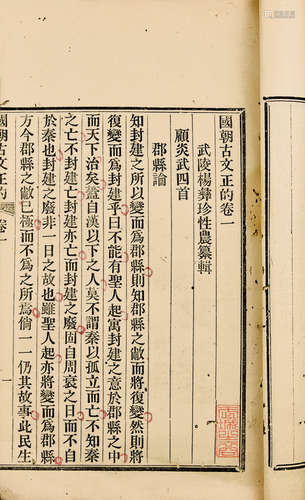 國朝古文正的卷一
武陵楊彝珍性農纂輯
顧炎武四首
郡縣論
知封建之所以變而爲郡縣則知郡縣之敝而將復變然則將
復變而爲封建乎曰不能有聖人起寓封建之意於郡縣之中
而天下治矣蓋自漢以下之人莫不謂秦以孤立而亡不知秦
之亡不封建亡封建亦亡而封建之廢固自周衰之日而不自
於秦也封建之廢非一日之故也雖聖人起亦將變而爲郡縣
方今郡縣之敝已極而不爲之所焉尙一一仍其故事此民生
國朝古文正的
卷一
一